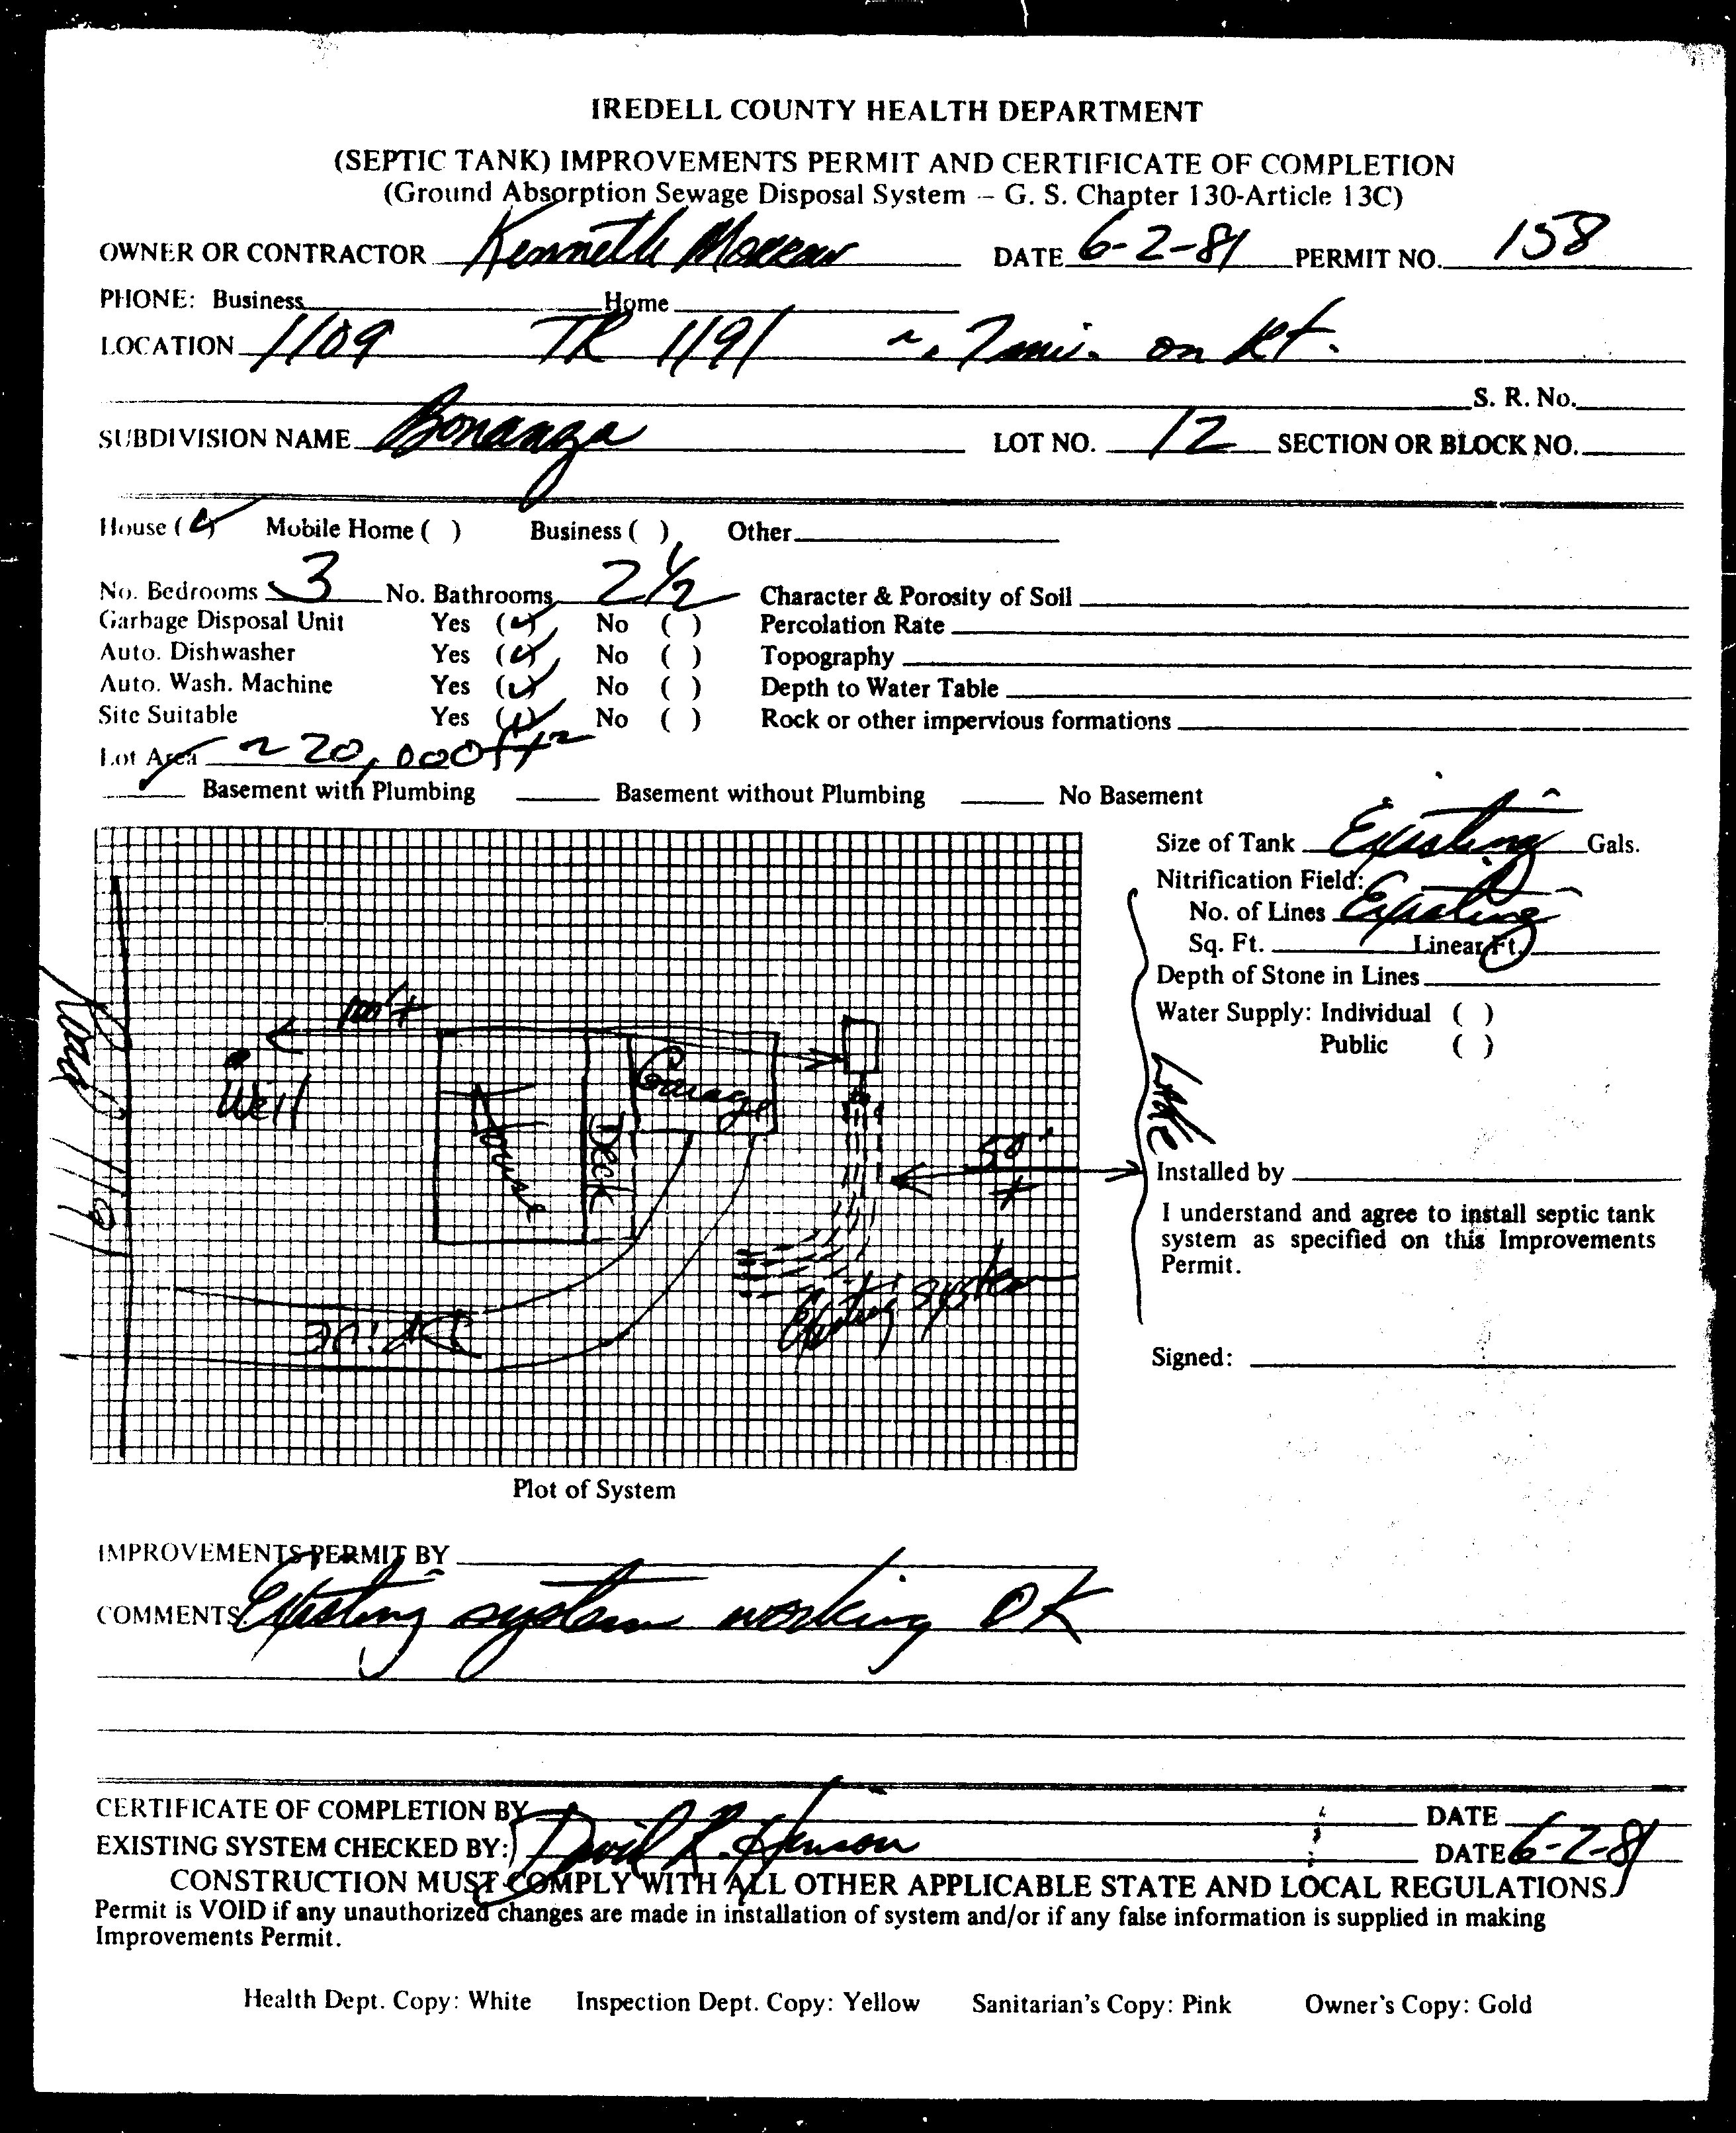 IREDELL COUNTY HEALTH DEPARTMENT
(SEPTIC TANK) IMPROVEMENTS PERMIT AND CERTIFICATE OF COMPLETION
(Ground Absorption Sewage Disposal System – G. S. Chapter 130-Article 13C)
OWNER OR CONTRACTOR Kenneth DATE 6-2-81 PERMIT NO. 158
PHONE: Business Home
LOCATION 1109 TR 1191 ~ .7 mi. on Rt.
S. R. No.
SUBDIVISION NAME Bonanza LOT NO. 12 SECTION OR BLOCK NO.
House (✓) Mobile Home ( ) Business ( ) Other
No. Bedrooms 3 No. Bathrooms 2 1/2 Character & Porosity of Soil
Garbage Disposal Unit Yes (✓) No ( ) Percolation Rate
Auto. Dishwasher Yes (✓) No ( ) Topography
Auto. Wash. Machine Yes (✓) No ( ) Depth to Water Table
Site Suitable Yes (✓) No ( ) Rock or other impervious formations
Lot Area ~ 20,000 ft²
✓ Basement with Plumbing Basement without Plumbing No Basement
Size of Tank Existing Gals.
Nitrification Field:
No. of Lines Existing
Sq. Ft. Linear Ft.
Depth of Stone in Lines
Water Supply: Individual ( )
Public ( )
Lake
Installed by
I understand and agree to install septic tank
system as specified on this Improvements
Permit.
Signed:
Road 1119
100'+
Well
House
Deck
Garage
50'
+
Existing system
Drive
Plot of System
IMPROVEMENTS PERMIT BY
COMMENTS: Existing system working OK
CERTIFICATE OF COMPLETION BY DATE
EXISTING SYSTEM CHECKED BY: David R. Henson DATE 6-2-81
CONSTRUCTION MUST COMPLY WITH ALL OTHER APPLICABLE STATE AND LOCAL REGULATIONS.
Permit is VOID if any unauthorized changes are made in installation of system and/or if any false information is supplied in making
Improvements Permit.
Health Dept. Copy: White Inspection Dept. Copy: Yellow Sanitarian's Copy: Pink Owner's Copy: Gold